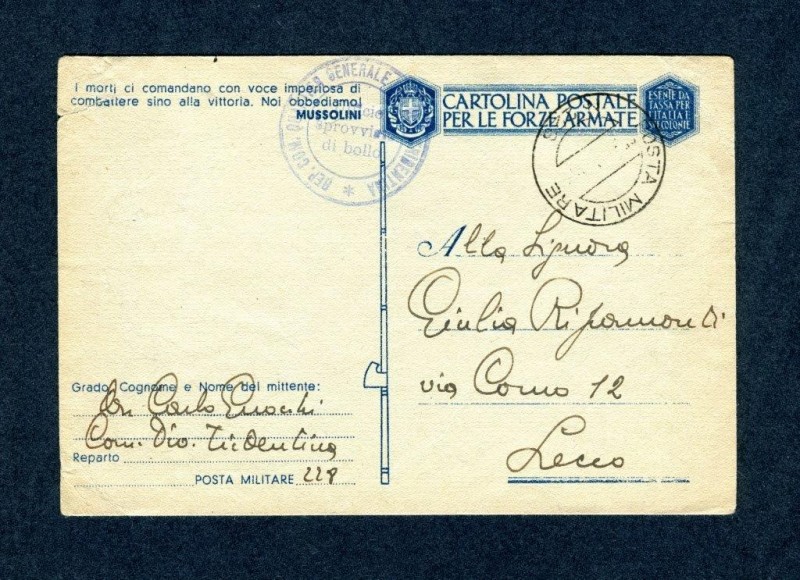 I morti ci comandano con voce imperiosa di
combattere sino alla vittoria. Noi obbediamo!
MUSSOLINI
GENERALE
REP. COM
sprovvis
di bollo
CARTOLINA POSTALE
PER LE FORZE ARMATE
ESENTE DA
TASSA PER
L'ITALIA E
SVE COLONIE
POSTA MILITARE
Alla Signora
Giulia Ripamonti
via Como 12
Lecco
Grado, Cognome e Nome del mittente:
Don Carlo Gnocchi
Com. Div. Tridentina
Reparto
POSTA MILITARE 228